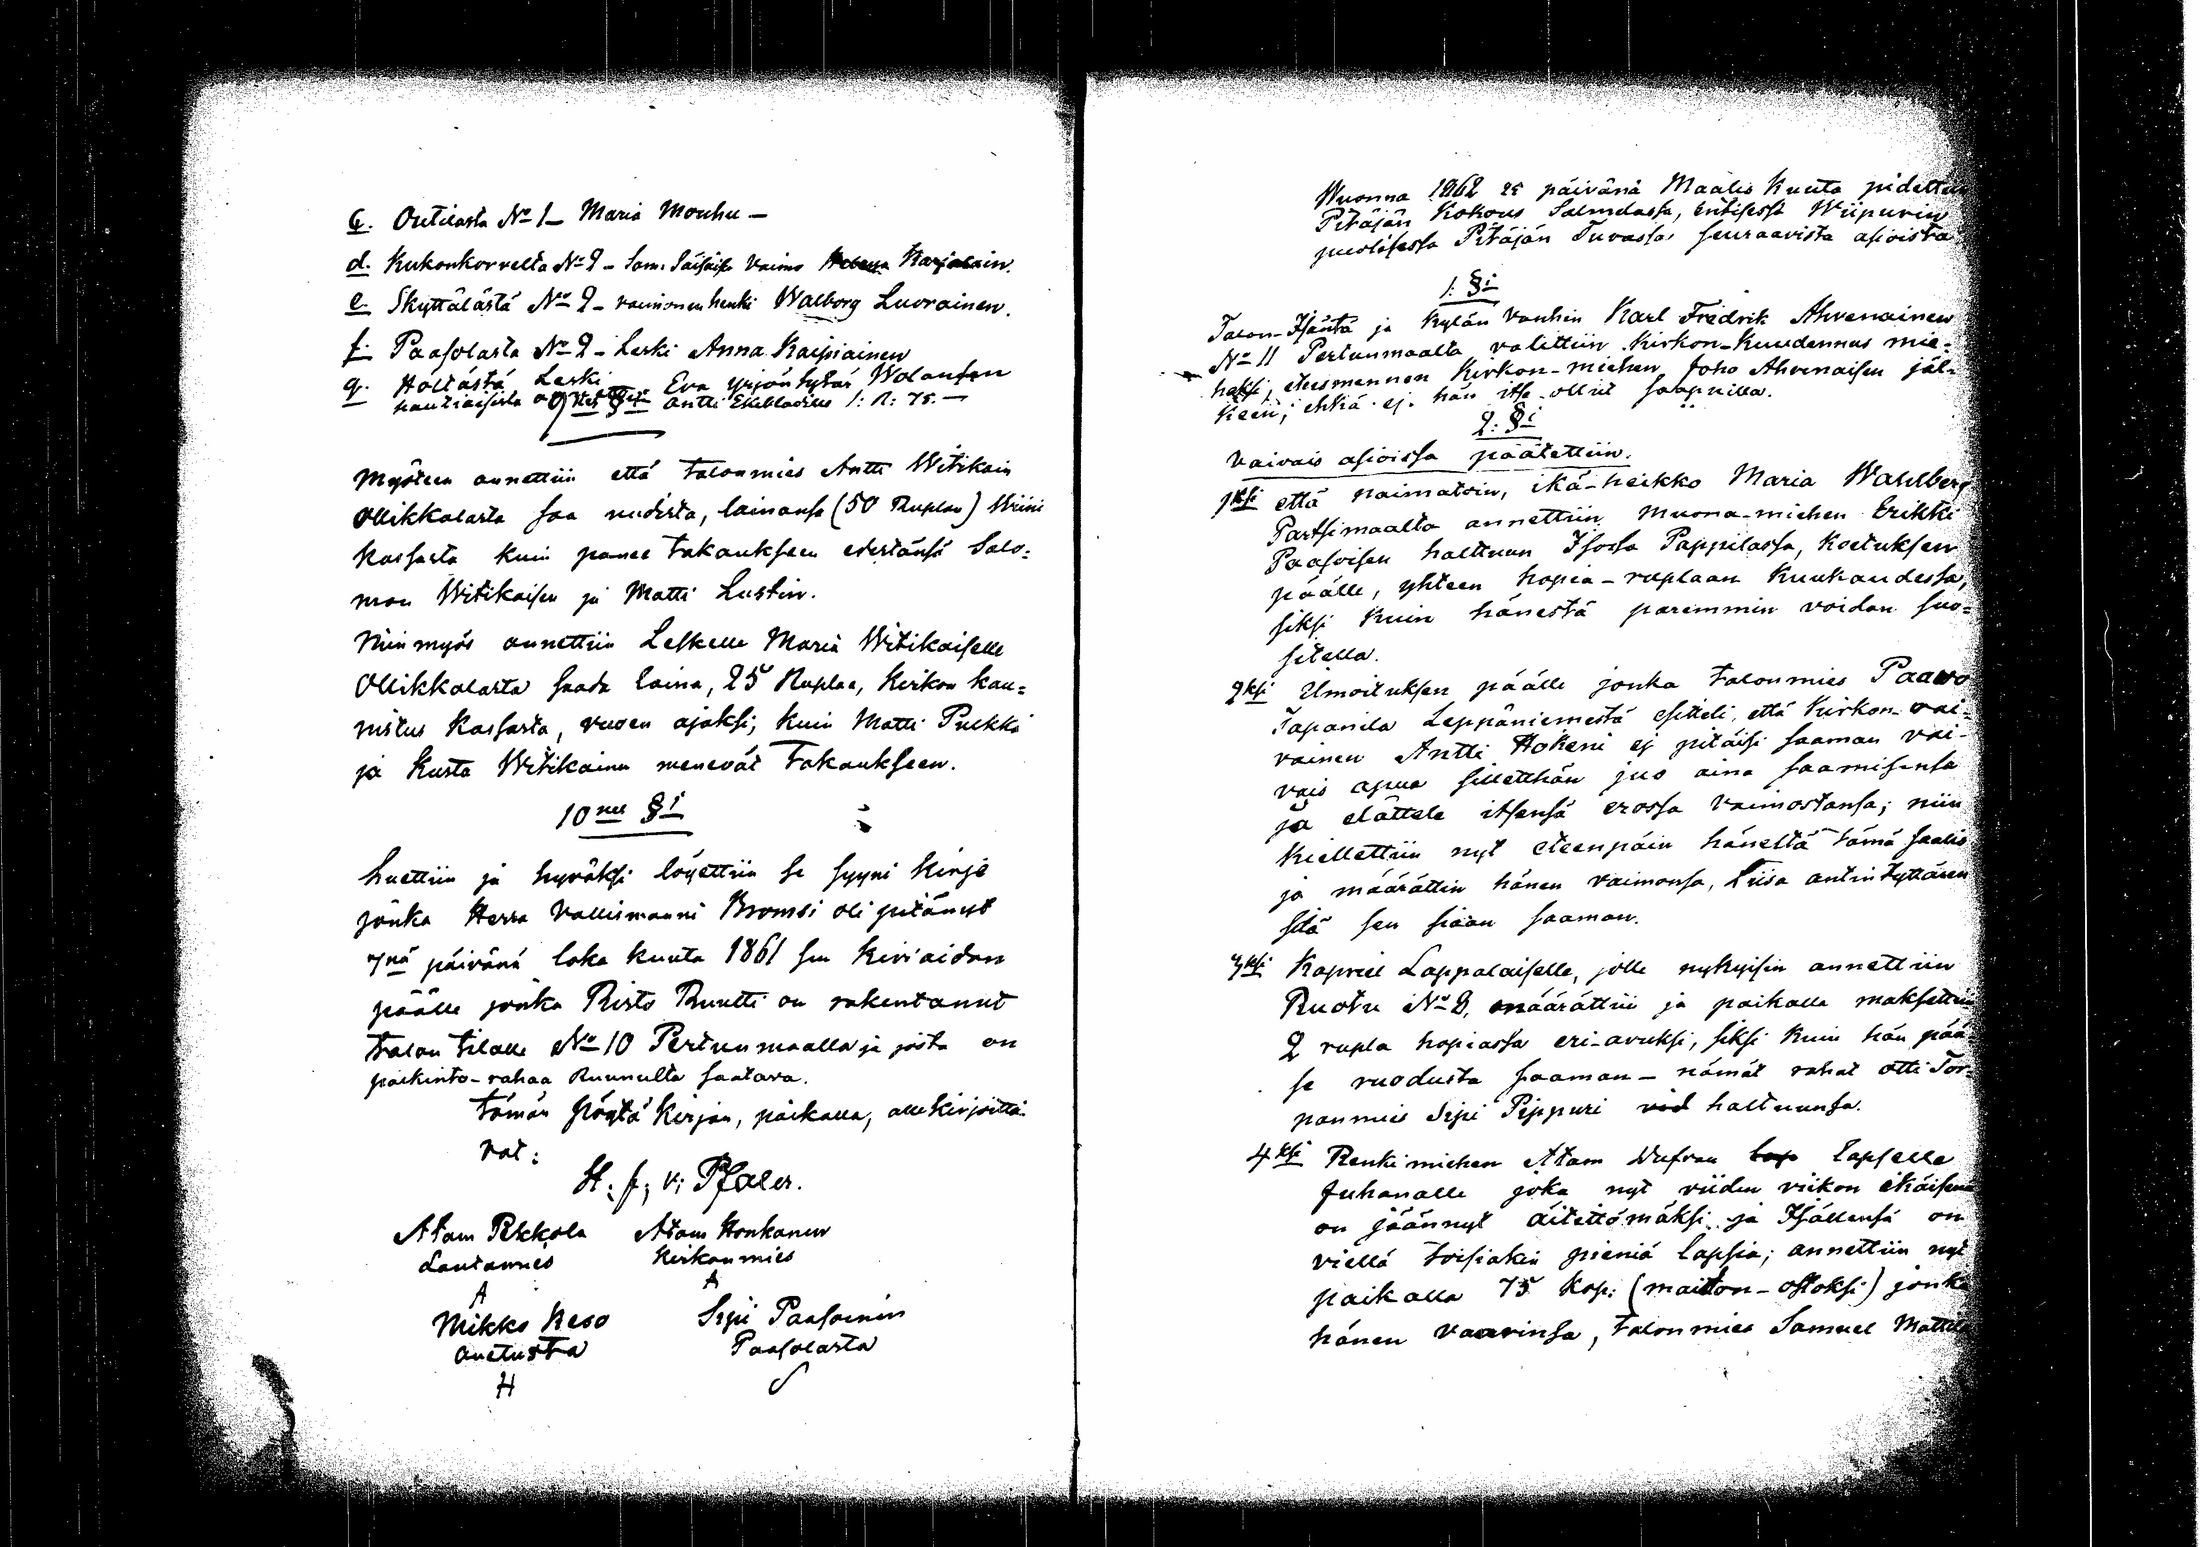 c. Outilasta No 1 – Maria Mouhu –
d. Kukonkorvelta No 2 – Sam: Säisäise vaimo Karjalain.
e. Skyttälästä No 2 – vaimonen henki Walborg Luorainen.
f. Paasolasta No 2 – Leski Anna Kaipiainen
g. Höltästä Leski Eva yrjön tytär Wolansen
Antti Ekebladille 1: R: 75. –
9 §i
Myöteen annettiin että talonmies Antti Witikain
Ollikkalasta saa uudista, lainansa (50 Ruplan) Wiini
kassasta kuin panee takaukseen edestänsä Salo=
mon Witikaisen ja Matti Lustin.
Niin myös annettiin Leskelle Maria Witikaiselle
Ollikkalasta saada laina, 25 Ruplaa, Kirkon kau=
nistus kassasta, vuoen ajaksi, kuin Matti Pulkki
ja Kusta Witikainen menevät takaukseen.
10nes §i
Luettiin ja hyväksi löyettiin se syyni kirje
jonka Herra Vallismanni Bromsi oli pitänyt
7nä päivänä loka kuuta 1861 sen kivi aidan
päälle jonka Risto Ruutti on rakentanut
talon tilalle No 10 Pertunmaalla ja josta on
palkinto-rahaa Ruunulta saatava.
Tämän Pöytä Kirjan, paikalla, allekirjoitta-
vat:
H: f; v; Pfaler.
Atam Pekkola Atam Honkanen
Lautamies Kirkonmies
A A
Mikko Keso Sipi Paasoinen
Auetusta Paasolasta
H S
Wuonna 1862 25 päivänä Maalis Kuuta pidettiin
Pitäjän Kokous Salmelassa, entisessä Wiipurin
puolisessa Pitäjän Tuvassa seuraavista asioista
1: §i
Talon-Isäntä ja kylän vanhin Karl Fredrik Ahvenainen
No 11 Pertunmaalta valittiin Kirkon-Kuudennus mie-
heksi, edesmennen Kirkon-miehen Joho Ahvenaisen jäl-
keen; ehkä ej hän itse ollut saapuilla.
2: §i
Vaivais asioissa päätettiin.
1ksi että naimatoin, ikä-heikko Maria Wahlberg
Partsimaalta annettiin muona-miehen Erikki
Paasoisen haltuun Isossa Pappilassa, koetuksen
päälle, yhteen hopia-ruplaan Kuukaudessa,
siksi kuin hänestä paremmin voidan suo=
sitella.
2ksi Ilmoituksen päälle jonka talonmies Paavo
Tapanila Leppäniemestä esitteli, että Kirkon-vai=
vainen Antti Hokeni ej pitäisi saaman vai-
vais apua silletthän juo aina saamisensa
ja elättele itsensä erossa vaimostansa; niin
kiellettiin nyt eteenpäin häneltä tämä saalis
ja määrättin hänen vaimonsa, Liisa antin tyttären
sitä sen siaan saaman.
3ksi Kapriel Lappalaiselle, jolle nykyisin annettiin
Ruotu No 2, määrättiin ja paikalla maksettiin
2 rupla hopiassa eri-avuksi, siksi kuin hän pää-
se ruodusta saaman – nämät rahat otti Tor-
panmies Sipi Pippuri haltuunsa.
4ksi Renkimiehen Atam Nufvan lapselle
Juhanalle joka nyt viiden viikon ikäisenä
on jäännyt äitettömäksi ja Isällensä on
viellä toisiakin pieniä lapsia; annettiin nyt
paikalla 75 kop: (maiton-ostoksi) jonka
hänen vaarinsa, talonmies Samuel Mattila